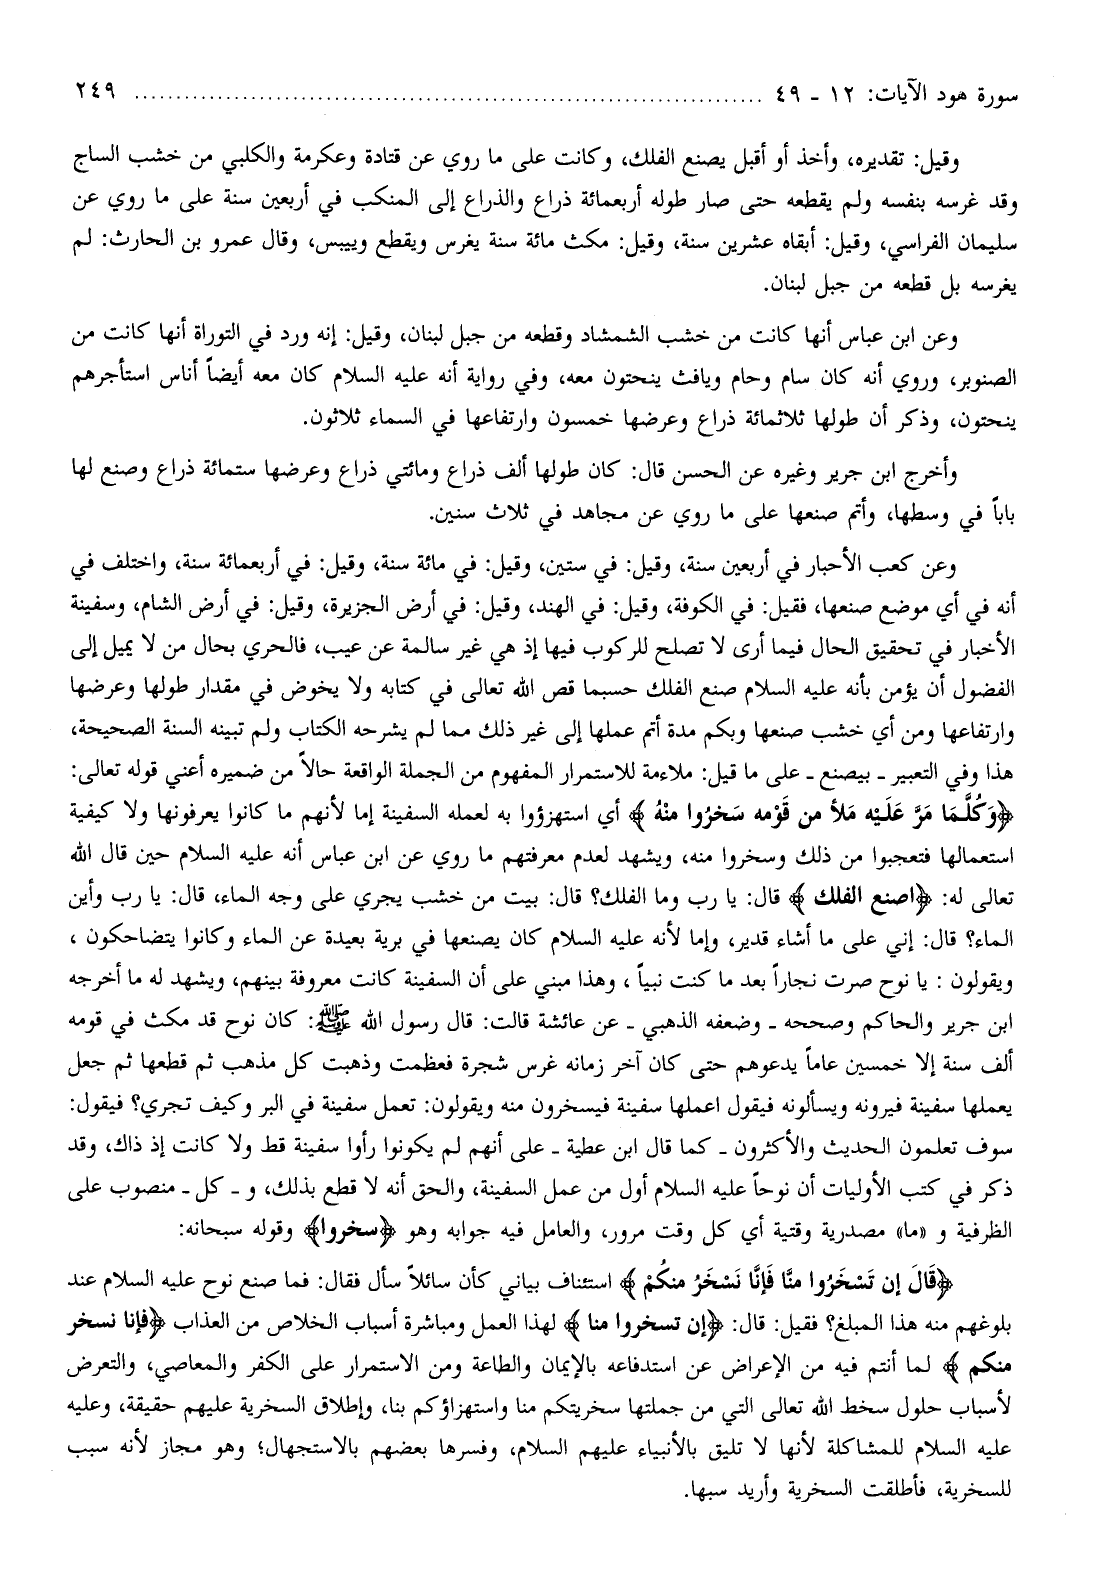 سورة هود الآيات: ١٢ ـ ٤٩ ........................................................................... ٢٤٩
وقيل: تقديره، وأخذ أو أقبل يصنع الفلك، وكانت على ما روي عن قتادة وعكرمة والكلبي من خشب الساج
وقد غرسه بنفسه ولم يقطعه حتى صار طوله أربعمائة ذراع والذراع إلى المنكب في أربعين سنة على ما روي عن
سليمان الفراسي، وقيل: أبقاه عشرين سنة، وقيل: مكث مائة سنة يغرس ويقطع وييبس، وقال عمرو بن الحارث: لم
يغرسه بل قطعه من جبل لبنان.
وعن ابن عباس أنها كانت من خشب الشمشاد وقطعه من جبل لبنان، وقيل: إنه ورد في التوراة أنها كانت من
الصنوبر، وروي أنه كان سام وحام ويافث ينحتون معه، وفي رواية أنه عليه السلام كان معه أيضاً أناس استأجرهم
ينحتون، وذكر أن طولها ثلاثمائة ذراع وعرضها خمسون وارتفاعها في السماء ثلاثون.
وأخرج ابن جرير وغيره عن الحسن قال: كان طولها ألف ذراع ومائتي ذراع وعرضها ستمائة ذراع وصنع لها
باباً في وسطها، وأتم صنعها على ما روي عن مجاهد في ثلاث سنين.
وعن كعب الأحبار في أربعين سنة، وقيل: في ستين، وقيل: في مائة سنة، وقيل: في أربعمائة سنة، واختلف في
أنه في أي موضع صنعها، فقيل: في الكوفة، وقيل: في الهند، وقيل: في أرض الجزيرة، وقيل: في أرض الشام، وسفينة
الأخبار في تحقيق الحال فيما أرى لا تصلح للركوب فيها إذ هي غير سالمة عن عيب، فالحري بحال من لا يميل إلى
الفضول أن يؤمن بأنه عليه السلام صنع الفلك حسبما قص الله تعالى في كتابه ولا يخوض في مقدار طولها وعرضها
وارتفاعها ومن أي خشب صنعها وبكم مدة أتم عملها إلى غير ذلك مما لم يشرحه الكتاب ولم تبينه السنة الصحيحة،
هذا وفي التعبير ـ بيصنع ـ على ما قيل: ملاءمة للاستمرار المفهوم من الجملة الواقعة حالاً من ضميره أعني قوله تعالى:
﴿وَكُلَّمَا مَرَّ عَلَيْه مَلأ من قَوْمه سَخرُوا منْهُ﴾ أي استهزؤوا به لعمله السفينة إما لأنهم ما كانوا يعرفونها ولا كيفية
استعمالها فتعجبوا من ذلك وسخروا منه، ويشهد لعدم معرفتهم ما روي عن ابن عباس أنه عليه السلام حين قال الله
تعالى له: ﴿اصنع الفلك﴾ قال: يا رب وما الفلك؟ قال: بيت من خشب يجري على وجه الماء، قال: يا رب وأين
الماء؟ قال: إني على ما أشاء قدير، وإما لأنه عليه السلام كان يصنعها في برية بعيدة عن الماء وكانوا يتضاحكون ،
ويقولون : يا نوح صرت نجاراً بعد ما كنت نبياً ، وهذا مبني على أن السفينة كانت معروفة بينهم، ويشهد له ما أخرجه
ابن جرير والحاكم وصححه ـ وضعفه الذهبي ـ عن عائشة قالت: قال رسول الله ﷺ: كان نوح قد مكث في قومه
ألف سنة إلا خمسين عاماً يدعوهم حتى كان آخر زمانه غرس شجرة فعظمت وذهبت كل مذهب ثم قطعها ثم جعل
يعملها سفينة فيرونه ويسألونه فيقول اعملها سفينة فيسخرون منه ويقولون: تعمل سفينة في البر وكيف تجري؟ فيقول:
سوف تعلمون الحديث والأكثرون ـ كما قال ابن عطية ـ على أنهم لم يكونوا رأوا سفينة قط ولا كانت إذ ذاك، وقد
ذكر في كتب الأوليات أن نوحاً عليه السلام أول من عمل السفينة، والحق أنه لا قطع بذلك، و ـ كل ـ منصوب على
الظرفية و «ما» مصدرية وقتية أي كل وقت مرور، والعامل فيه جوابه وهو ﴿سخروا﴾ وقوله سبحانه:
﴿قَالَ إن تَسْخَرُوا منَّا فَإنَّا نَسْخَرُ منكُمْ﴾ استئناف بياني كأن سائلاً سأل فقال: فما صنع نوح عليه السلام عند
بلوغهم منه هذا المبلغ؟ فقيل: قال: ﴿إن تسخروا منا﴾ لهذا العمل ومباشرة أسباب الخلاص من العذاب ﴿فإنا نسخر
منكم﴾ لما أنتم فيه من الإعراض عن استدفاعه بالإيمان والطاعة ومن الاستمرار على الكفر والمعاصي، والتعرض
لأسباب حلول سخط الله تعالى التي من جملتها سخريتكم منا واستهزاؤكم بنا، وإطلاق السخرية عليهم حقيقة، وعليه
عليه السلام للمشاكلة لأنها لا تليق بالأنبياء عليهم السلام، وفسرها بعضهم بالاستجهال؛ وهو مجاز لأنه سبب
للسخرية، فأطلقت السخرية وأريد سببها.